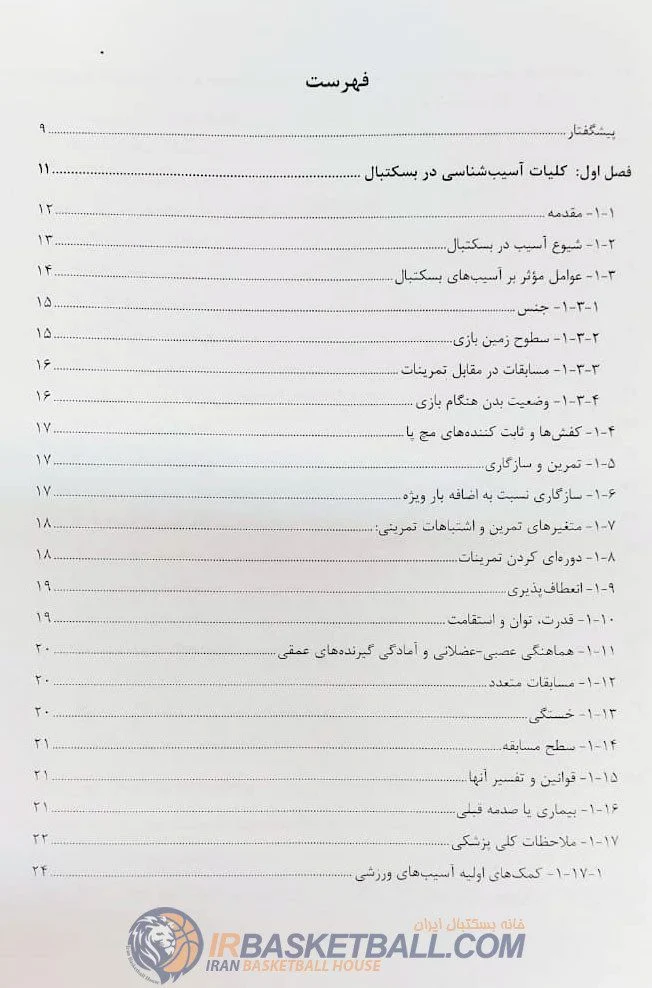 فهرست
پیشگفتار ۹
فصل اول: کلیات آسیب‌شناسی در بسکتبال ۱۱
۱-۱- مقدمه ۱۲
۱-۲- شیوع آسیب در بسکتبال ۱۳
۱-۳- عوامل مؤثر بر آسیب‌های بسکتبال ۱۴
۱-۳-۱- جنس ۱۵
۱-۳-۲- سطوح زمین بازی ۱۵
۱-۳-۳- مسابقات در مقابل تمرینات ۱۶
۱-۳-۴- وضعیت بدن هنگام بازی ۱۶
۱-۴- کفش‌ها و ثابت کننده‌های مچ پا ۱۷
۱-۵- تمرین و سازگاری ۱۷
۱-۶- سازگاری نسبت به اضافه بار ویژه ۱۷
۱-۷- متغیرهای تمرین و اشتباهات تمرینی: ۱۸
۱-۸- دوره‌ای کردن تمرینات ۱۸
۱-۹- انعطاف‌پذیری ۱۹
۱-۱۰- قدرت، توان و استقامت ۱۹
۱-۱۱- هماهنگی عصبی-عضلانی و آمادگی گیرنده‌های عمقی ۲۰
۱-۱۲- مسابقات متعدد ۲۰
۱-۱۳- خستگی ۲۰
۱-۱۴- سطح مسابقه ۲۱
۱-۱۵- قوانین و تفسیر آنها ۲۱
۱-۱۶- بیماری یا صدمه قبلی ۲۱
۱-۱۷- ملاحظات کلی پزشکی ۲۲
۱-۱۷-۱- کمک‌های اولیه آسیب‌های ورزشی ۲۴
خانه بسکتبال ایران
IRBASKETBALL.COM
IRAN BASKETBALL HOUSE
Iran Basketball House